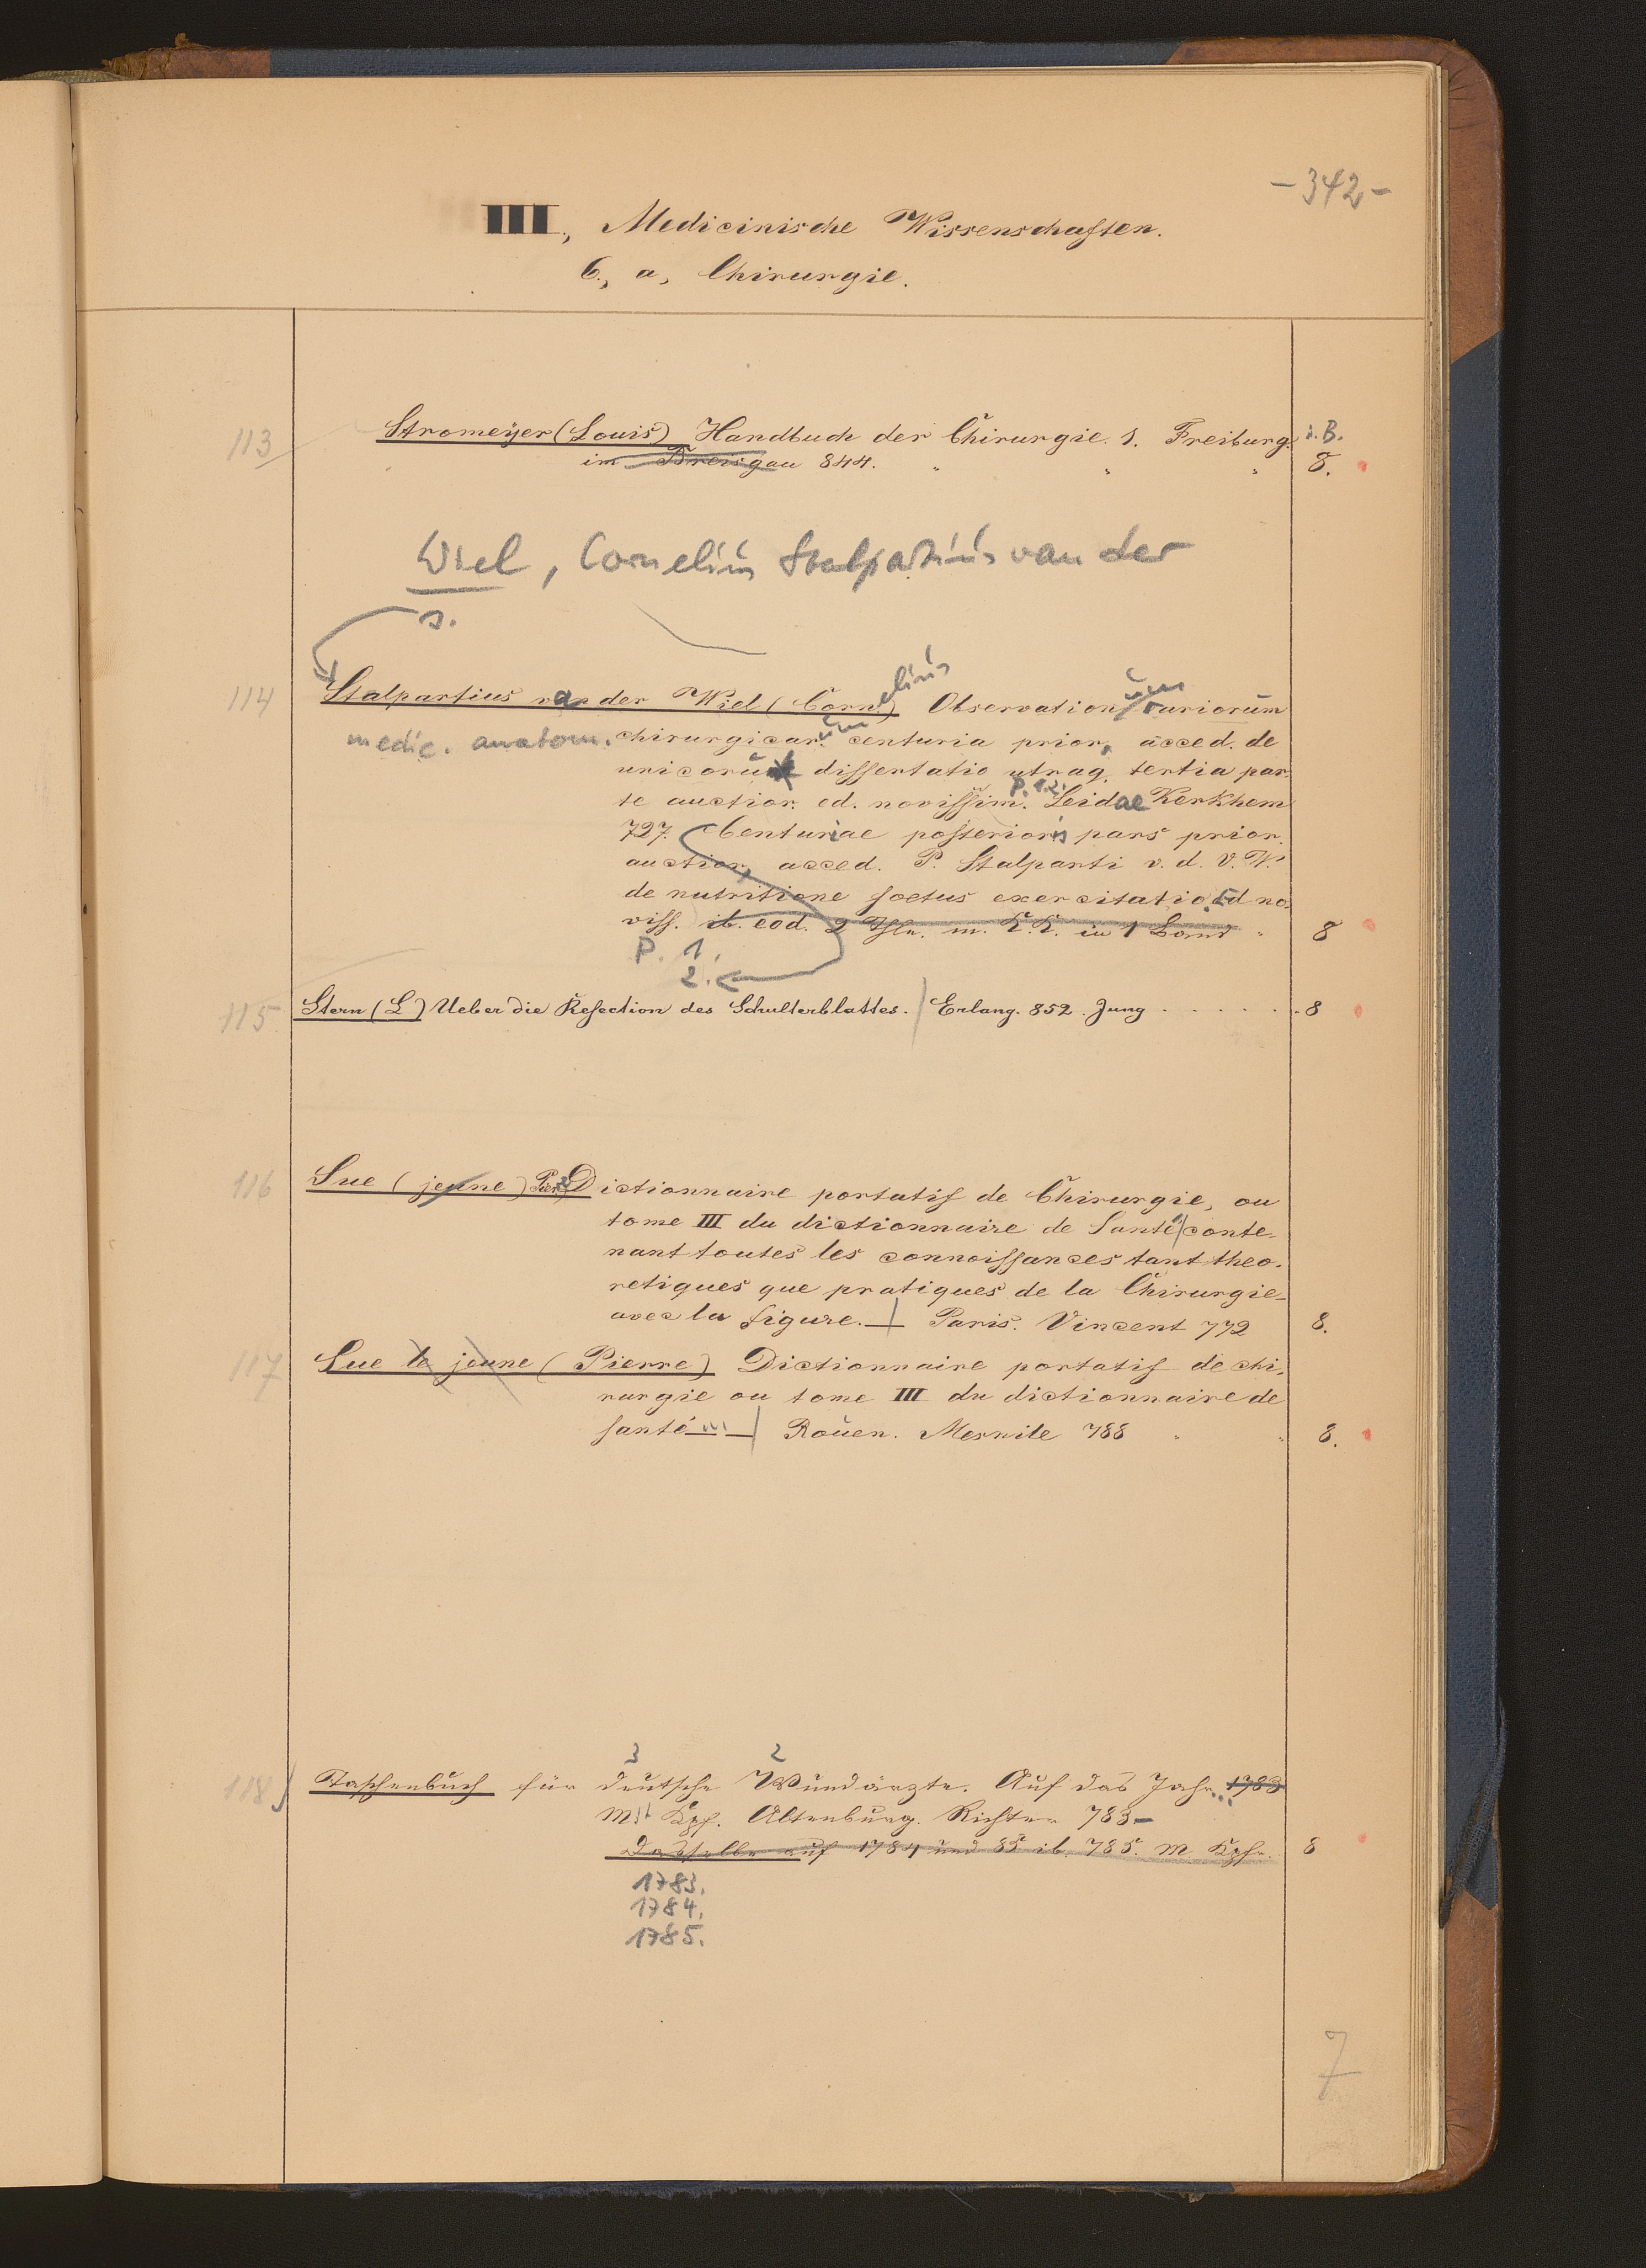 -342-
III., Medicinische Wissenschaften.
6., a, Chirurgie.
113 Stromeyer (Louis) Handbuch der Chirurgie. 1. Freiburg i. B.
im Breisgau 844. 8.
Wiel, Cornelius Stalpartius van der
s.
114 Stalpartius van der Wiel (Cornelius) Observationum rariorum
medic. anatom. chirurgicarum centuria prior, acced. de
unicornu dissertatio utraq. tertia par-
te auctior. ed. novissim. P. 1.2. Leidae Kerkhem
727. Centuriae posterioris pars prior
auctior, acced. P. Stalparti v. d. V. W.
de nutritione foetus exercitatio. Ed no-
viss. ib. eod. 2 Thle. m. K.K. in 1 Band 8
P. 1.
2.
115 Stern (L) Ueber die Resection des Schulterblattes. Erlang. 852. Jung 8
116 Sue (jeune) Pierre Dictionnaire portatif de Chirurgie, ou
tome III du dictionnaire de Santé conte-
nant toutes les connoissances tant theo-
retiques que pratiques de la Chirurgie-
avec la figure. Paris. Vincent 772 8.
117 Sue le jeune (Pierre) Dictionnaire portatif de chi-
rurgie ou tome III du dictionnaire de
santé ... Rouen. Mesnile 788 8.
3 2
118 Taschenbuch für deutsche Wundärzte. Auf das Jahr ... 1783
Mit Kpf. Altenburg. Richter 783-
Dasselbe auf 1784 und 85 ib. 785. M Kpfr. 8
1783.
1784.
1785.
7